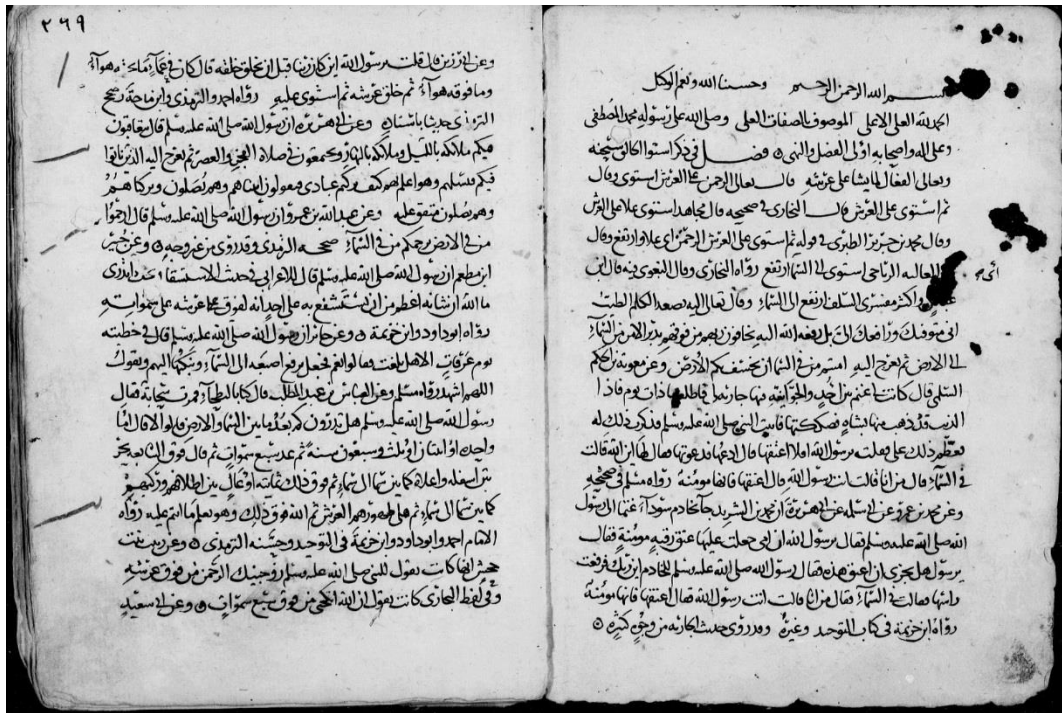 بسم الله الرحمن الرحيم وحسبنا الله ونعم الوكيل
الحمد لله العلي الاعلى الموصوف بالصفات العلى وصلى الله على رسوله محمد المصطفى
وعلى اله واصحابه اولى الفضل والنهى فصل في ذكر استواء الله سبحنه
وتعالى الفعال لما يشا على عرشه قال تعالى الرحمن على العرش استوى وقال
ثم استوى على العرش قال البخاري في صحيحه قال مجاهد استوى علا على العرش
وقال محمد بن جرير الطبري في قوله ثم استوى على العرش الرحمن اي علا وارتفع وقال
ابي
العاليه الرياحي استوى الى السماء ارتفع رواه البخاري وقال البغوي فيه قال ابن
عباس واكثر مفسري السلف ارتفع الى السماء وقال تعالى اليه يصعد الكلم الطيب
اني متوفيك ورافعك الي بل رفعه الله اليه يخافون ربهم من فوقهم يدبر الامر من السماء
الى الارض ثم يعرج اليه امنتم من في السماء ان يخسف بكم الارض وعن معويه بن الحكم
السلمي قال كانت لي غنم بين احد والجوانيه فيها جاريه لي فاطلعتها ذات يوم فاذا
الذيب قد ذهب منها بشاه فصككتها فاتيت النبي صلى الله عليه وسلم فذكرت ذلك له
فعظم ذلك علي فقلت يرسول الله افلا اعتقها قال ادعها فدعوتها فقال لها اين الله قالت
في السماء قال من انا قالت انت رسول الله قال اعتقها فانها مومنة رواه مسلم في صحيحه
وعن محمد بن عمرو عن ابي سلمه عن ابي هريرة ان محمد بن الشريد جا بخادم سودآ عتما الى رسول
الله صلى الله عليه وسلم فقال يرسول الله ان امي جعلت عليها عتق رقبه مومنة فقال
يرسول هل يجزي ان اعتق هذه فقال رسول الله صلى الله عليه وسلم للخادم اين ربك فرفعت
راسها فقالت في السماء فقال من انا قالت انت رسول الله فقال اعتقها فانها مومنة
رواه ابن خزيمة في كتاب التوحيد وغيره وقد روي حديث الجاريه من وجوه كثيره
٢٦٩
وعن ابي رزين قال قلت يرسول الله اين كان ربنا قبل ان يخلق خلقه قال كان في عماء ما تحته هوآء
وما فوقه هوآء ثم خلق عرشه ثم استوى عليه رواه احمد والترمذي وابن ماجة صحح
الترمذي حديثا باسناده وعن ابي هريرة ان رسول الله صلى الله عليه وسلم قال يتعاقبون
فيكم ملائكه بالليل وملائكه بالنهار ويجتمعون في صلاة الفجر والعصر ثم يعرج اليه الذين باتوا
فيكم فيسئلهم وهو اعلم بهم كيف تركتم عبادي فيقولون اتيناهم وهم يصلون وتركناهم
وهم يصلون متفق عليه وعن عبد الله بن عمرو ان رسول الله صلى الله عليه وسلم قال ارحموا
من في الارض يرحمكم من في السماء صححه الترمذي وقد روي من غير وجه وعن جبير
ابن مطعم ان رسول الله صلى الله عليه وسلم قال للاعرابي في حديث الاستسقاء ويحك اتدري
ما الله ان شانه اعظم من ان يستشفع به على احد انه لفوق سماء عرشه على سمواته
رواه ابو داود وابن خزيمة وعن جابر ان رسول الله صلى الله عليه وسلم قال في خطبته
يوم عرفات الا هل بلغت فقالوا نعم فجعل يرفع اصبعه الى السماء وينكتها اليهم ويقول
اللهم اشهد رواه مسلم وعن العباس بن عبد المطلب قال كنا بالبطحآء فمرت سحابة فقال
رسول الله صلى الله عليه وسلم هل تدرون كم بعد ما بين السماء والارض قالوا لا قال اما
واحده او اثنتان او ثلث وسبعون سنة ثم عد سبع سموات ثم قال فوق السابعه بحر
بين اسفله واعلاه كما بين سماء الى سماء ثم فوق ذلك ثمانيه اوعال بين اظلافهم وركبهم
كما بين سماء الى سماء ثم على ظهورهم العرش ثم الله فوق ذلك وهو يعلم ما انتم عليه رواه
الامام احمد وابو داود وابن خزيمة في التوحيد وحسنه الترمذي وعن زينب بنت
جحش انها كانت تقول للنبي صلى الله عليه وسلم زوجنيك الرحمن من فوق عرشه
وفي لفظ البخاري كانت تقول ان الله انكحني من فوق سبع سموات وعن ابي سعيد